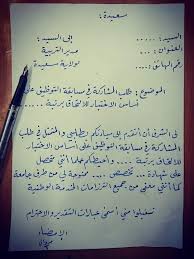 سعيدة :
السيد : ..... إلى السيد :
العنوان : ... مدير التربية
رقم الهاتف : .... لولاية سعيدة
الموضوع : طلب المشاركة في مسابقة التوظيف على
أساس الاختبار للالتحاق برتبة ....
لي الشرف أن أتقدم إلى سيادتكم بطلبي والمتمثل في طلب
المشاركة في مسابقة التوظيف على أساس الاختبار
للالتحاق برتبة .... وأحيطكم علما أنني متحصل
على شهادة .... ممنوحة لي من طرف جامعة
كما أنني معفى من جميع التزامات الخدمة الوطنية
تقبلوا مني أسمى عبارات التقدير والاحترام
الإمضاء